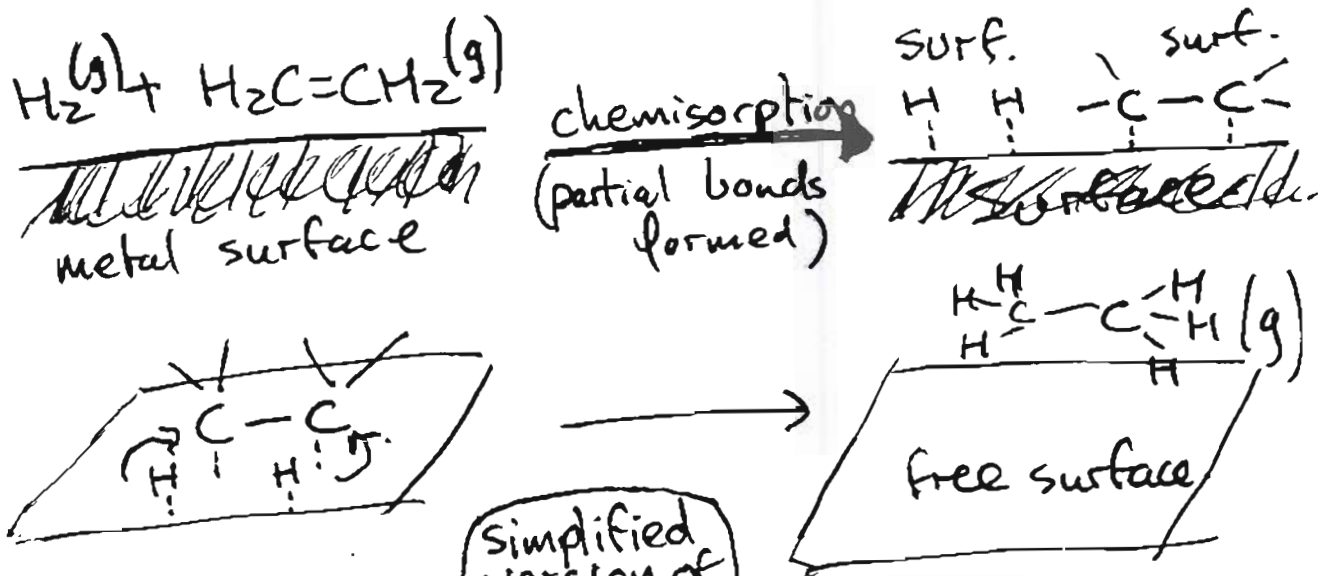 H₂(g) + H₂C=CH₂(g)
metal surface
chemisorption
(partial bonds
formed)
surf. surf.
H H C — C
surface
C — C
H H
H H H
C — C H (g)
H H
free surface
simplified
version of